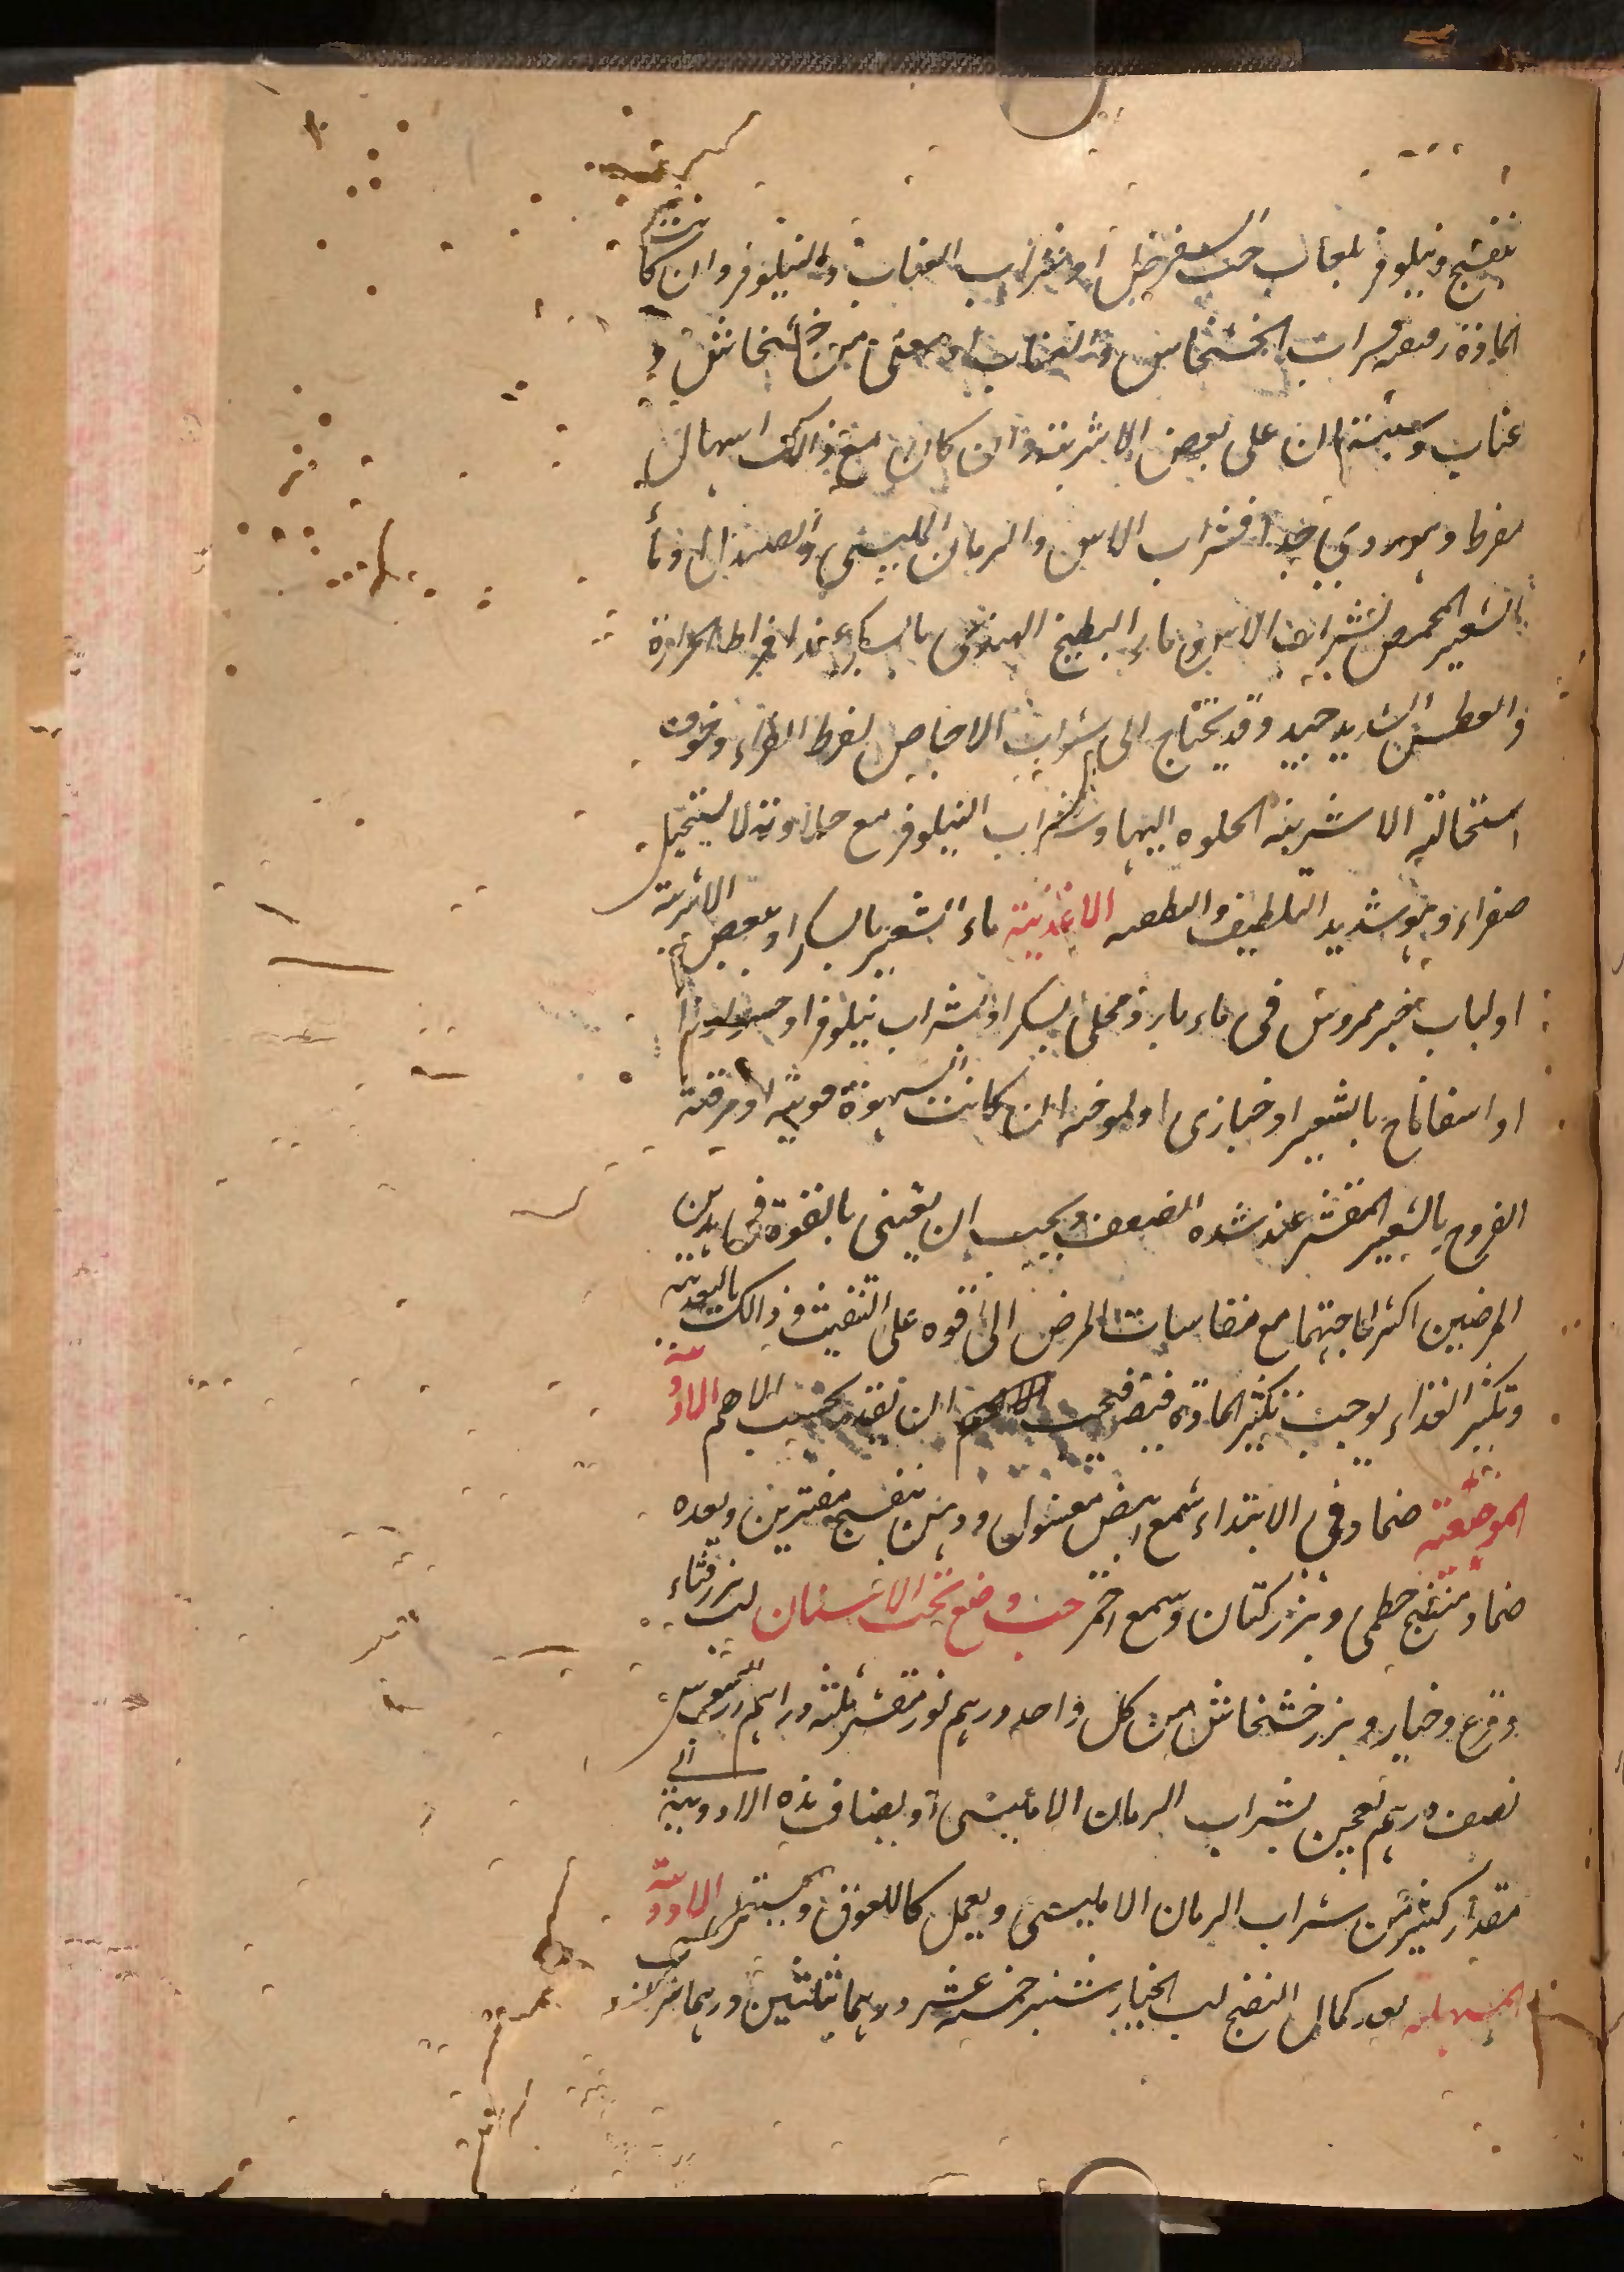 بنفسج ونيلوفر بلعاب حب السفرجل او بشراب العناب والنيلوفر وان كانت
المادة رقيقة فشراب الخشخاش والعناب او مغلى من خشخاش و
عناب وسپستان على بعض الاشربة وان كان مع ذالك اسهال
مفرط وهو ردى جدا فشراب الاس والرمان المليسى والصندل وماء
الشعير المحمص بشراب الاس وماء البطيخ الهندى بالسكر عند افراط الحرارة
والعطش الشديد جيد وقد يحتاج الى شراب الاجاص لفرط الصفراء وخوف
استحالة الاشربة الحلوه اليها وشراب النيلوفر مع حلاوته لا يستحيل
صفراء وهو شديد التلطيف والتطفيه الاغذية ماء الشعير بالسكر او ببعض الاشربة
او لباب خبز ممروس فى ماء بارد محلى بسكر او بشراب نيلوفر او
او اسفاناخ بالشعير او خبازى او ملوخيه ان كانت الشهوة قوية او مرقة
الفروج بالشعير المقشر عند شده الضعف ويجب ان يعتنى بالقوة فى هذين
المرضين اكثر لحاجتهما مع مقاسات المرض الى قوه على التنفيث وذالك بالتغذية
وتكثير الغذاء يوجب تكثير المادة فيضر فيجب ان تقدم بحسب الاهم الادوية
الموضعية ضماد فى الابتداء شمع ابيض مغسول ودهن بنفسج مفترين وبعده
ضماد منضج خطمى وبزر كتان وشمع احمر حب وضع تحت الاسنان لب بزر قثاء
وقرع وخيار وبزر خشخاش من كل واحد درهم لوز مقشر ثلثه دراهم رب سوس
نصف درهم يعجن بشراب الرمان الامليسى او يضاف هذه الادوية الى
مقدار كثير من شراب الرمان الامليسى ويعمل كاللعوق ويستعمل الادوية
المسهله بعد كمال النضج لب الخيارشنبر خمسه عشر درهما ثلثين درهما